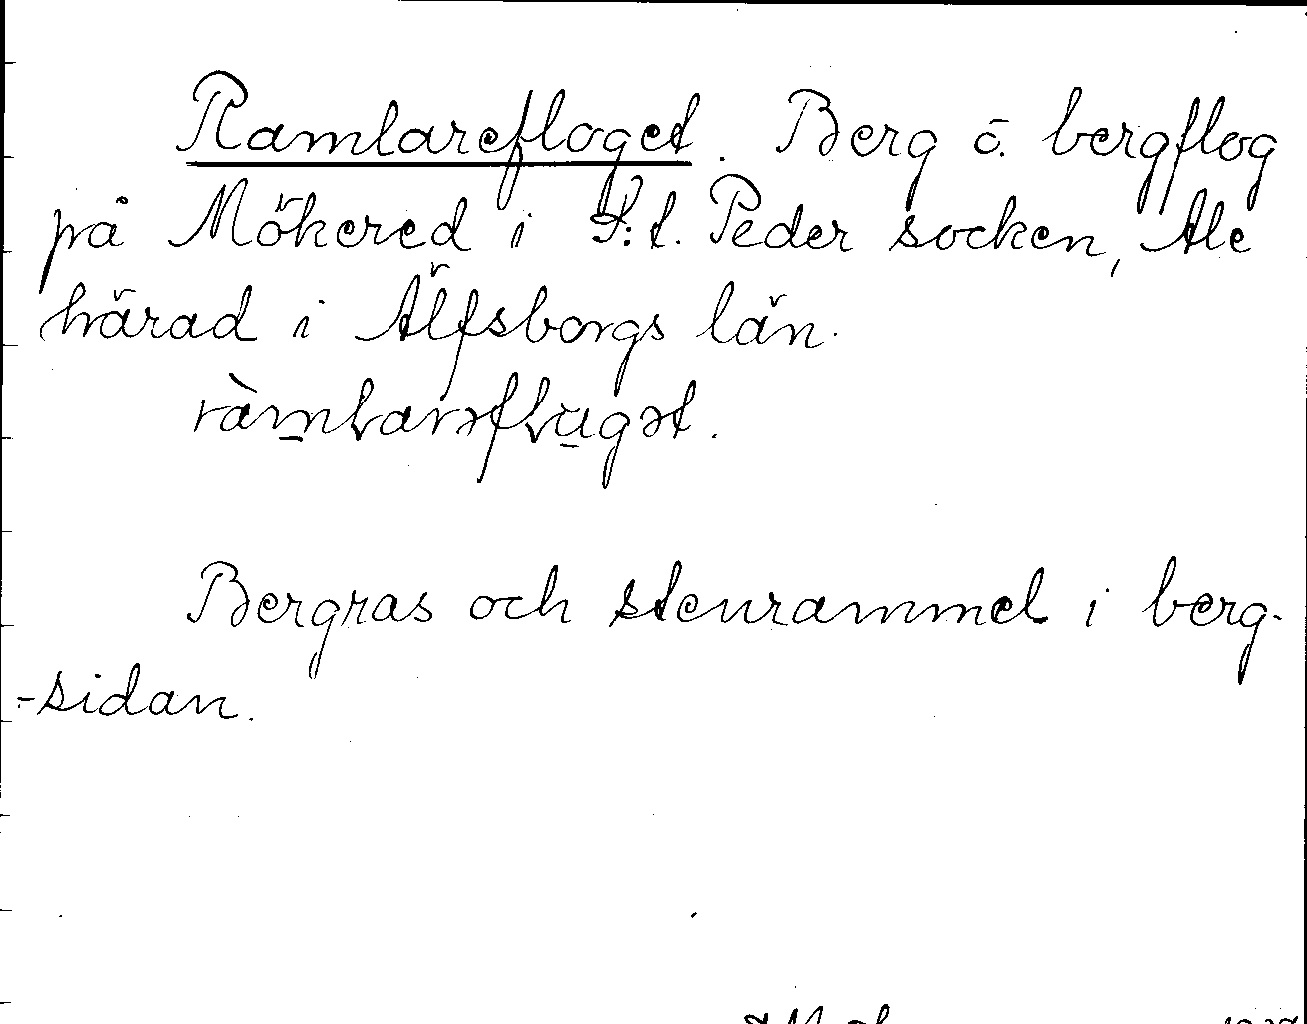 Ramlarefloget. Berg o. bergflog
på Mökered i S:t. Peder socken, Ale
härad i Älfsborgs län.
ràmlarəflugət.
Bergras och stenrammel i berg-
-sidan.